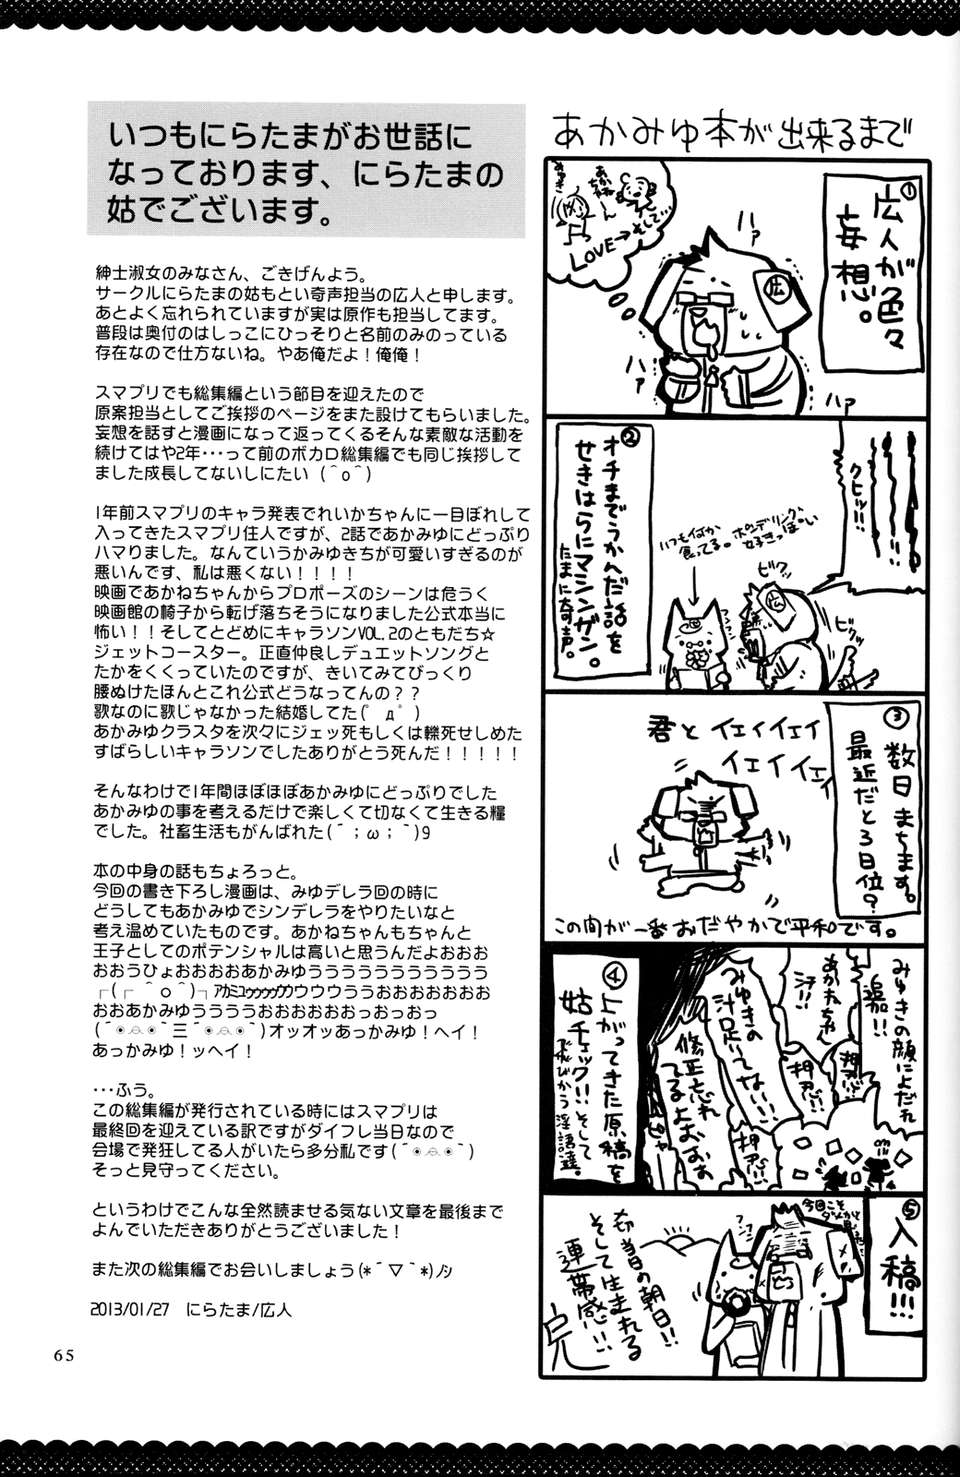 いつもにらたまがお世話に
なっております、にらたまの
姑でございます。
紳士淑女のみなさん、ごきげんよう。
サークルにらたまの姑もとい奇声担当の広人と申します。
あとよく忘れられていますが実は原作も担当してます。
普段は奥付のはしっこにひっそりと名前のみのっている
存在なので仕方ないね。やあ俺だよ！俺俺！
スマプリでも総集編という節目を迎えたので
原案担当としてご挨拶のページをまた設けてもらいました。
妄想を話すと漫画になって返ってくるそんな素敵な活動を
続けてはや2年･･･って前のボカロ総集編でも同じ挨拶して
ました成長してないしにたい（＾o＾）
1年前スマプリのキャラ発表でれいかちゃんに一目ぼれして
入ってきたスマプリ住人ですが、2話であかみゆにどっぷり
ハマりました。なんていうかみゆきちが可愛いすぎるのが
悪いんです、私は悪くない！！！！
映画であかねちゃんからプロポーズのシーンは危うく
映画館の椅子から転げ落ちそうになりました公式本当に
怖い！！そしてとどめにキャラソンVOL.2のともだち☆
ジェットコースター。正直仲良しデュエットソングと
たかをくくっていたのですが、きいてみてびっくり
腰ぬけたほんとこれ公式どうなってんの？？
歌なのに歌じゃなかった結婚してた(ﾟдﾟ)
あかみゆクラスタを次々にジェッ死もしくは轢死せしめた
すばらしいキャラソンでしたありがとう死んだ！！！！！
そんなわけで1年間ほぼほぼあかみゆにどっぷりでした
あかみゆの事を考えるだけで楽しくて切なくて生きる糧
でした。社畜生活もがんばれた(´；ω；｀)9
本の中身の話もちょろっと。
今回の書き下ろし漫画は、みゆデレラ回の時に
どうしてもあかみゆでシンデレラをやりたいなと
考え温めていたものです。あかねちゃんもちゃんと
王子としてのポテンシャルは高いと思うんだよおおお
おおうひょおおおおあかみゆううううううううううう
┌(┌ ＾o＾)┐ｱｶﾐﾕｩｩｩｩｩウウウウううおおおおおおお
おおあかみゆうううううおおおおおおっおっおっ
(´◉◠◉｀三´◉◠◉｀)オッオッあっかみゆ！ヘイ！
あっかみゆ！ッヘイ！
･･･ふう。
この総集編が発行されている時にはスマプリは
最終回を迎えている訳ですがダイフレ当日なので
会場で発狂してる人がいたら多分私です(´◉◠◉｀)
そっと見守ってください。
というわけでこんな全然読ませる気ない文章を最後まで
よんでいただきありがとうございました！
また次の総集編でお会いしましょう(*´▽｀*)ﾉｼ
2013/01/27　にらたま/広人
65
あかみゆ本が出来るまで
①広人が色々
妄想。
みゆき
あかねちゃーん
LOVE→そして…
ハァ
ハァ
ハァ
広
②オチまでうかんだ話を
せきはらにマシンガン。
たまに奇声。
クヒッ!!
いつも何か
食ってる。
ポンデリングが
好きっぽい
フンフン
ビクッ
ビクッ
広
③数日まちます。
最近だと3日位？
君とイェイイェイ
イェイイェイ
この間が一番おだやかで平和です。
④上がってきた原稿を
姑チェック!!そして
飛びかう淫語達。
みゆきの顔によだれ
追加!!
あかねちゃん
みゆきの
汁足りてない!!
修正忘れ
てるよおおお
押忍!!
押忍!!
⑤入稿!!!
今回こそ
ダメかと
フフ
当日の朝日!!
そして生まれる
連帯感!!
完